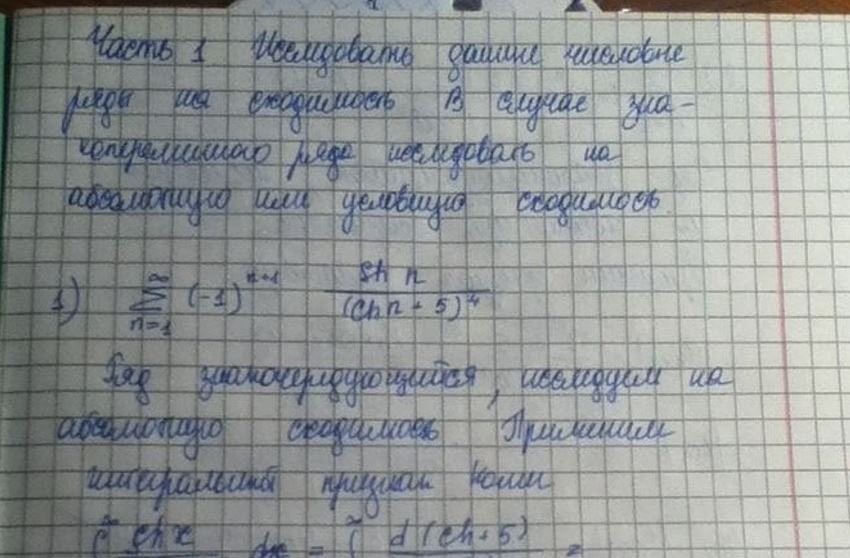 Часть 1 Исследовать данные числовые
ряды на сходимость В случае зна-
копеременного ряда исследовать на
абсолютную или условную сходимость
1) ∑ n=1 ∞ (-1)^{n+1} sh n / (ch n + 5)^4
Ряд знакочередующийся, исследуем на
абсолютную сходимость Применим
интегральный признак Коши
∫ ch x dx = ∫ d(ch+5) =